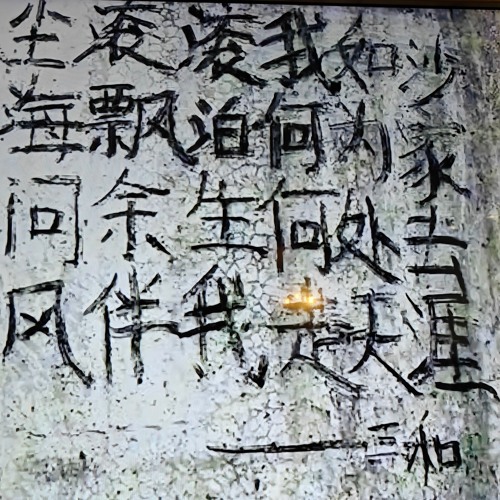 尘衮滚我如沙
海飘泊何为家
问余生何处土
风伴我走天涯
——三和